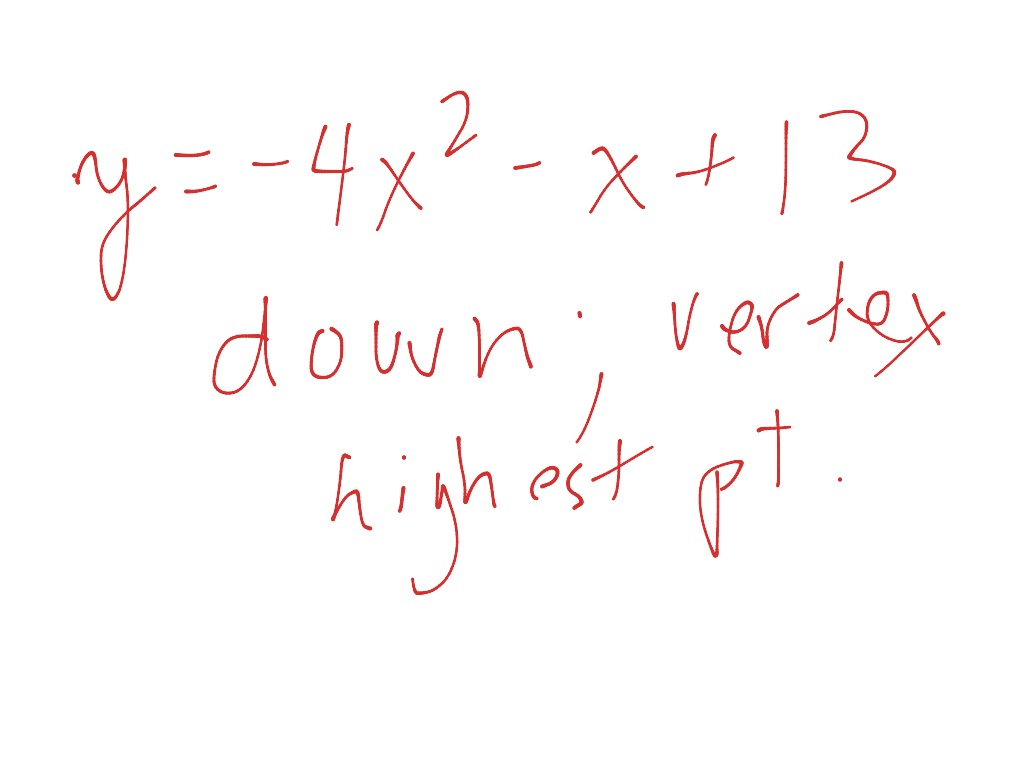 y = -4x² - x + 13
down; vertex
highest pt.